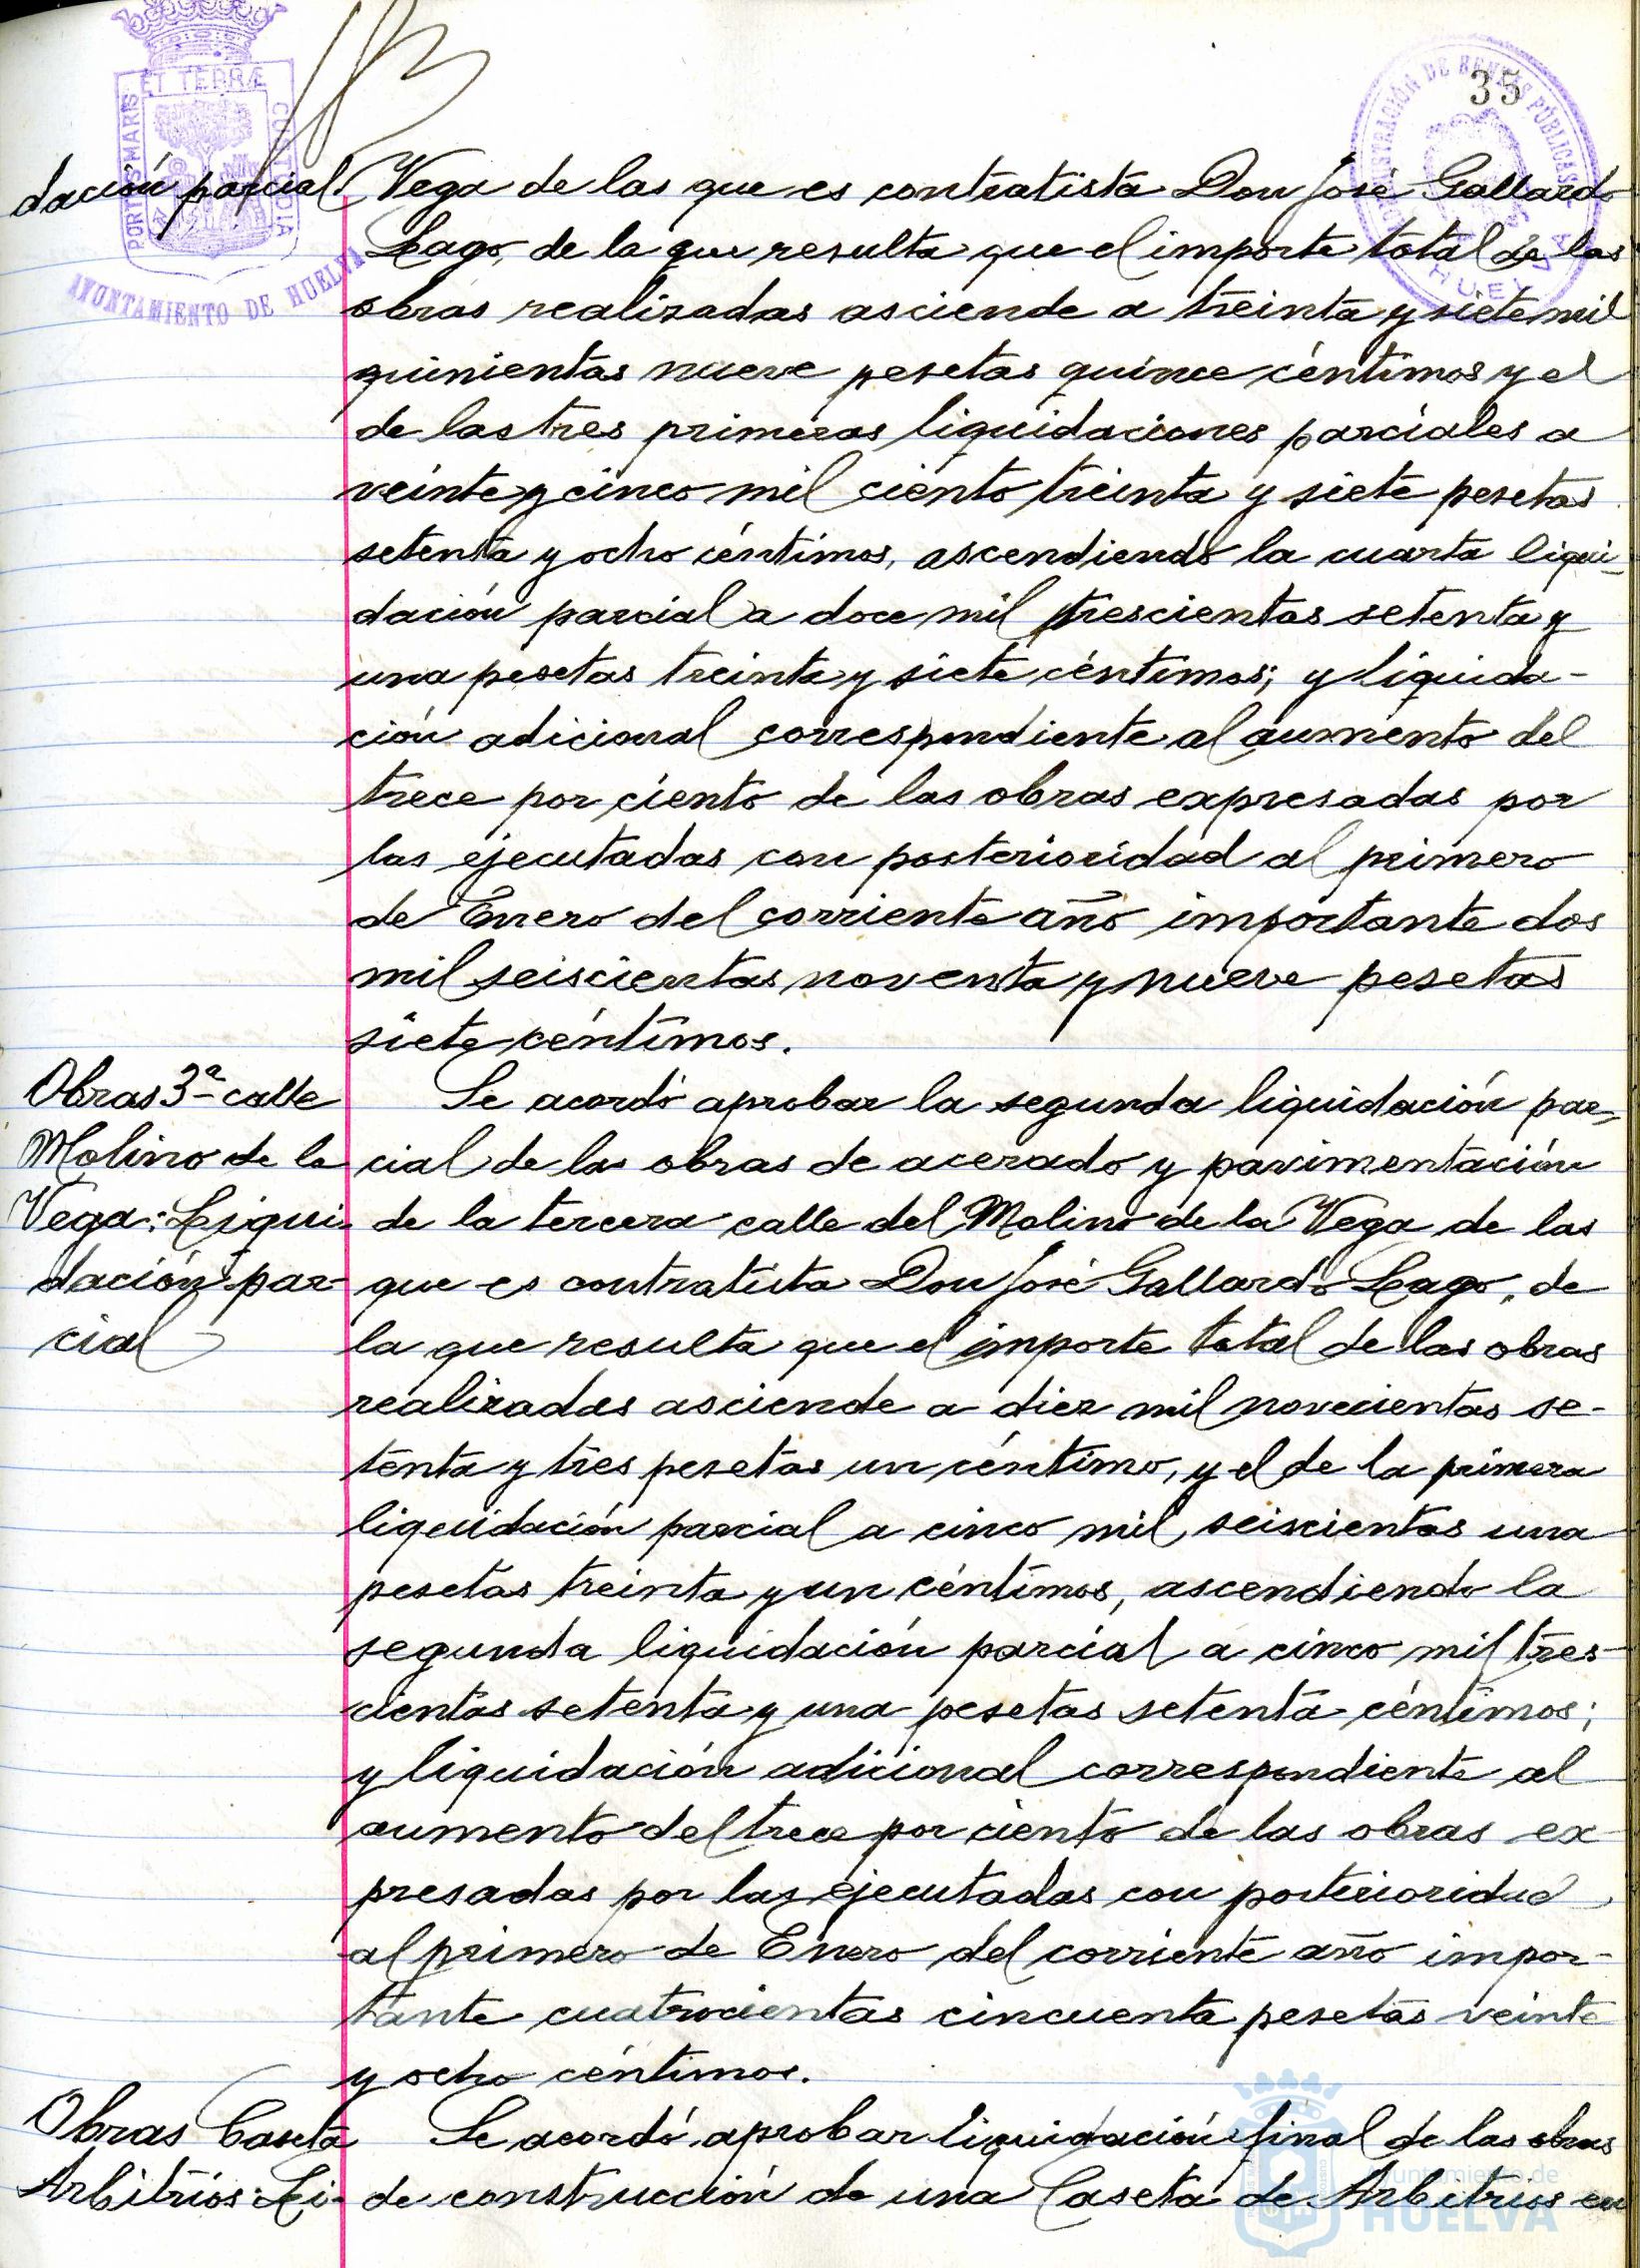 35
ET TERRÆ
PORTUS MARIS
CUSTODIA
AYUNTAMIENTO DE HUELVA
HUELVA
dación parcial. Vega de las que es contratista Don José Gallardo
Lago, de la que resulta que el importe total de las
obras realizadas asciende a treinta y siete mil
quinientas nueve pesetas quince céntimos y el
de las tres primeras liquidaciones parciales a
veinte y cinco mil ciento treinta y siete pesetas
setenta y ocho céntimos, ascendiendo la cuarta liqui-
dación parcial a doce mil trescientas setenta y
una pesetas treinta y siete céntimos; y liquida-
ción adicional correspondiente al aumento del
trece por ciento de las obras expresadas por
las ejecutadas con posterioridad al primero
de Enero del corriente año importante dos
mil seiscientas noventa y nueve pesetas
siete céntimos.
Obras 3ª calle
Molino de la
Vega: Liqui-
dación par-
cial
Se acordó aprobar la segunda liquidación par-
cial de las obras de acerado y pavimentación
de la tercera calle del Molino de la Vega de las
que es contratista Don José Gallardo Lago, de
la que resulta que el importe total de las obras
realizadas asciende a diez mil novecientas se-
tenta y tres pesetas un céntimo, y el de la primera
liquidación parcial a cinco mil, seiscientas una
pesetas treinta y un céntimos, ascendiendo la
segunda liquidación parcial a cinco mil tres-
cientas setenta y una pesetas setenta céntimos;
y liquidación adicional correspondiente al
aumento del trece por ciento de las obras ex-
presadas por las ejecutadas con posterioridad
al primero de Enero del corriente año impor-
tante cuatrocientas cincuenta pesetas veinte
y ocho céntimos.
Obras Caseta
Arbitrios: Li-
Se acordó aprobar liquidación final de las obras
de construcción de una Caseta de Arbitrios en
Ayuntamiento de
HUELVA